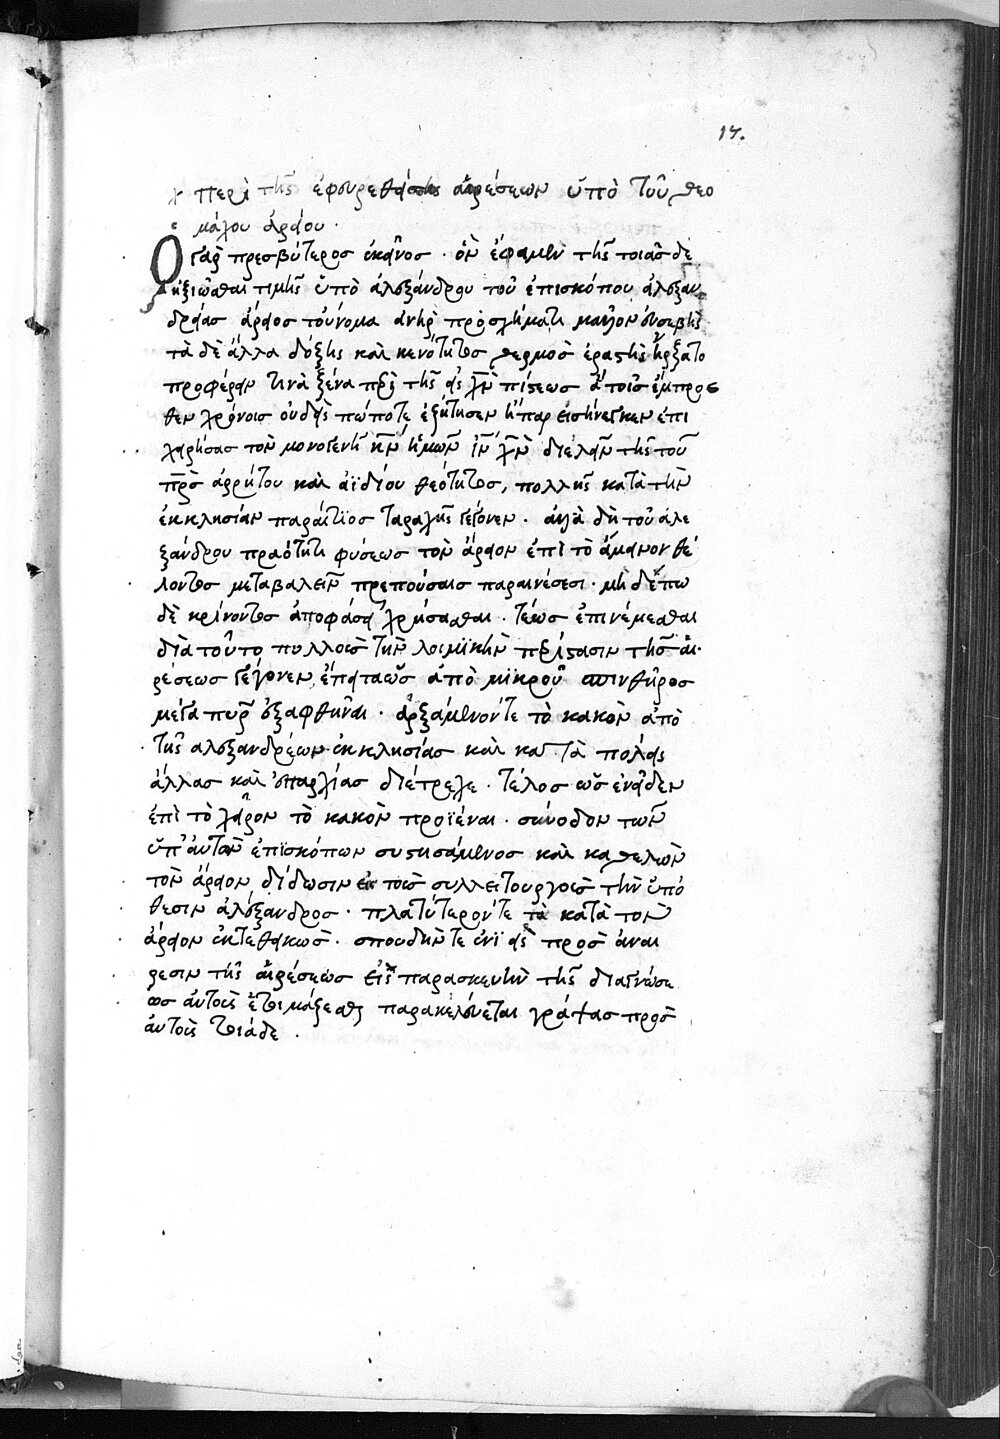 17.
περὶ τῆς ἐφευρεθείσης αἱρέσεως ὑπὸ τοῦ θεο
μάχου ἀρείου·
Ο γὰρ πρεσβύτερος ἐκεῖνος· ὃν ἔφαμεν τῆς τοιᾶσδε
ἠξιῶσθαι τιμῆς ὑπὸ ἀλεξάνδρου τοῦ ἐπισκόπου ἀλεξαν
δρείας ἄρειος τοὔνομα ἀνὴρ προσχήματι μᾶλλον εὐσεβὴς
τὰ δὲ ἄλλα δόξης καὶ κενότητος θερμὸς ἐραστὴς ἤρξατο
προφέρειν τινὰ ξένα περὶ τῆς εἰς χν πίστεως ἃ τοῖς ἔμπροσ
θεν χρόνοις οὐδεὶς πώποτε ἐξήτησεν ἢ παρεισήνεγκεν ἐπι
χειρήσας τὸν μονογενῆ κν ἡμῶν ιν χν διελεῖν τῆς τοῦ
πρς ἀρρήτου καὶ ἀϊδίου θεότητος, πολλῆς κατὰ τὴν
ἐκκλησίαν παραίτιος ταραχῆς γέγονεν· ἀλλὰ δὴ τοῦ ἀλε
ξάνδρου πραότητι φύσεως τὸν ἄρειον ἐπὶ τὸ ἄμεινον θέ
λοντος μεταβαλεῖν πρεπούσαις παραινέσεσι· μηδέπω
δὲ κρίνοντος ἀποφάσει χρήσασθαι· τέως ἐπινέμεσθαι
διὰ τοῦτο πολλοῖς τὴν λοιμϊκὴν περίστασιν τῆς αἱ
ρέσεως γέγονεν, ἔπειτα ὡς ἀπὸ μϊκροῦ σπινθῆρος
μέγα πῦρ ἐξαφθῆναι· ἀρξάμενόν τε τὸ κακὸν ἀπὸ
τῆς ἀλεξανδρέων ἐκκλησίας καὶ κατὰ πόλεις
ἄλλας καὶ ἐπαρχίας διέτρεχε· τέλος ὡς ἐνεῖδεν
ἐπὶ τὸ χεῖρον τὸ κακὸν προϊέναι· σύνοδον τῶν
ὑπ' αὐτὸν ἐπϊσκόπων συστησάμενος καὶ καθελὼν
τὸν ἄρειον, δίδωσιν ἐν τοῖς συλλειτουργοῖς τὴν ὑπό
θεσιν ἀλέξανδρος· πλατύτερόν τε τὰ κατὰ τὸν
ἄρειον ἐκτεθεικὼς· σπουδήν τε ἑνϊ εἰς πρὸς ἀναί
ρεσιν τῆς αἱρέσεως εἰς παρασκευὴν τῆς διαγνώσε
ως αὐτοῖς ἑτοιμάζεσθαι παρακελεύεται γράψας πρὸς
αὐτοῖς τοιάδε·